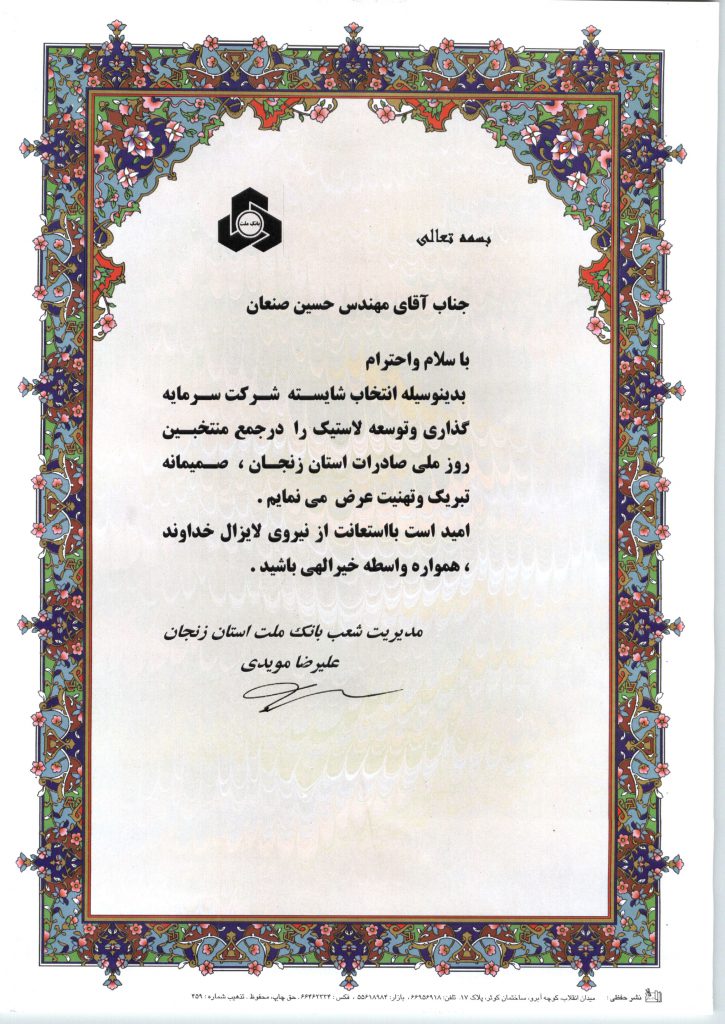 بانک ملت
بسمه تعالی
جناب آقای مهندس حسین صنعان
با سلام واحترام
بدینوسیله انتخاب شایسته شرکت سرمایه
گذاری وتوسعه لاستیک را درجمع منتخبین
روز ملی صادرات استان زنجان ، صمیمانه
تبریک وتهنیت عرض می نمایم .
امید است بااستعانت از نیروی لایزال خداوند
، همواره واسطه خیرالهی باشید .
مدیریت شعب بانک ملت استان زنجان
علیرضا مویدی
نشر حفظی : میدان انقلاب، کوچه آبرو، ساختمان کوثر، پلاک ۱۷. تلفن: ۶۶۹۵۶۹۱۸ . بازار: ۵۵۶۱۸۹۸۴ . فکس : ۶۶۴۶۲۳۳۴ . حق چاپ، محفوظ . تذهیب شماره : ۴۵۹